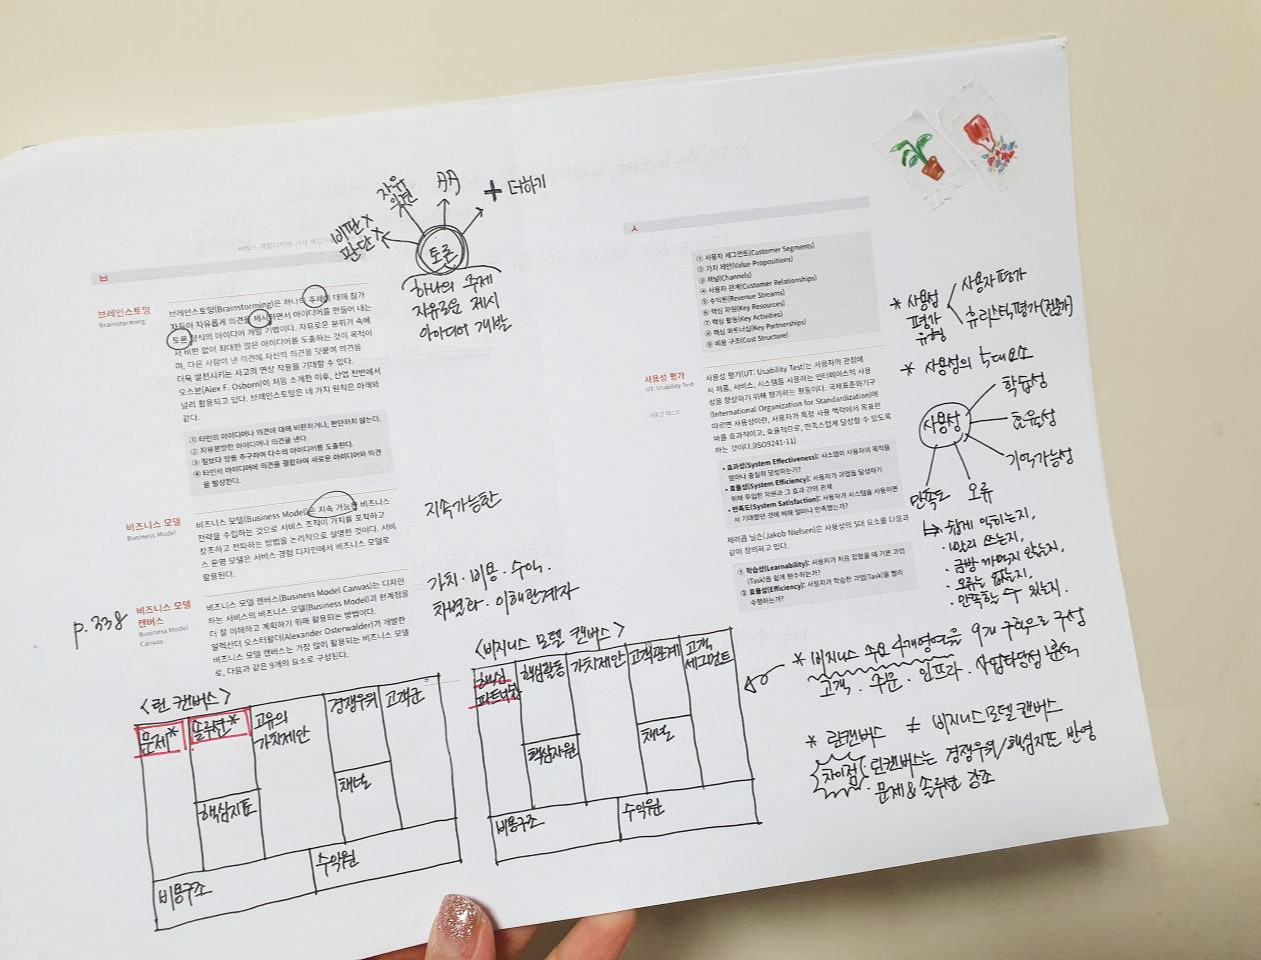 비판 X
판단 X
자유
의견
+ 더하기
토론
하나의 주제
자유로운 제시
아이디어 개발
ㅂ
브레인스토밍
Brainstorming
브레인스토밍(Brainstorming)은 하나의 주제에 대해 참가
자들이 자유롭게 의견을 제시하면서 아이디어를 만들어 내는
토론 형식의 아이디어 개발 기법이다. 자유로운 분위기 속에
서 비판 없이 최대한 많은 아이디어를 도출하는 것이 목적이
며, 다른 사람이 낸 의견에 자신의 의견을 덧붙여 의견을
더욱 발전시키는 사고의 연상 작용을 기대할 수 있다.
오스본(Alex F. Osborn)이 처음 소개한 이후, 산업 전반에서
널리 활용되고 있다. 브레인스토밍의 네 가지 원칙은 아래와
같다.
① 타인의 아이디어나 의견에 대해 비판하거나, 판단하지 않는다.
② 자유분방한 아이디어나 의견을 낸다.
③ 질보다 양을 추구하여 다수의 아이디어를 도출한다.
④ 타인의 아이디어에 의견을 결합하여 새로운 아이디어와 의견
을 발상한다.
비즈니스 모델
Business Model
비즈니스 모델(Business Model)은 지속 가능한 비즈니스
전략을 수립하는 것으로 서비스 조직이 가치를 포착하고
창조하고 전파하는 방법을 논리적으로 설명한 것이다. 서비
스 운영 모델은 서비스·경험 디자인에서 비즈니스 모델로
활용된다.
지속가능한
p.338
비즈니스 모델
캔버스
Business Model
Canvas
비즈니스 모델 캔버스(Business Model Canvas)는 디자인
하는 서비스의 비즈니스 모델(Business Model)과 관계점을
더 잘 이해하고 계획하기 위해 활용되는 방법이다.
알렉산더 오스터왈더(Alexander Osterwalder)가 개발한
비즈니스 모델 캔버스는 가장 많이 활용되는 비즈니스 모델
로, 다음과 같은 9개의 요소로 구성된다.
가치·비용·수익·
차별화·이해관계자
<린 캔버스>
문제*
솔루션*
고유의
가치제안
경쟁우위
고객군
핵심지표
채널
비용구조
수익원
<비지니스 모델 캔버스>
핵심
파트너쉽
핵심활동
가치제안
고객관계
고객
세그먼트
핵심자원
채널
비용구조
수익원
ㅅ
① 사용자 세그먼트(Customer Segments)
② 가치 제안(Value Propositions)
③ 채널(Channels)
④ 사용자 관계(Customer Relationships)
⑤ 수익원(Revenue Streams)
⑥ 핵심 자원(Key Resources)
⑦ 핵심 활동(Key Activities)
⑧ 핵심 파트너십(Key Partnerships)
⑨ 비용 구조(Cost Structure)
사용성 평가
UT: Usability Test
사용성 테스트
사용성 평가(UT: Usability Test)는 사용자의 관점에
서 제품, 서비스, 시스템을 사용하는 인터페이스의 사용
성을 향상하기 위해 평가하는 활동이다. 국제표준화기구
(International Organization for Standardization)에
따르면 사용성이란, 사용자가 특정 사용 맥락에서 목표한
바를 효과적이고, 효율적으로, 만족스럽게 달성할 수 있도록
하는 것이다.(ISO9241-11)
• 효과성(System Effectiveness): 시스템이 사용자의 목적을
얼마나 충실히 달성하는가?
• 효율성(System Efficiency): 사용자가 과업을 달성하기
위해 투입한 자원과 그 효과 간의 관계
• 만족도(System Satisfaction): 사용자가 시스템을 사용하면
서 기대했던 것에 비해 얼마나 만족했는가?
제이콥 닐슨(Jakob Nielsen)은 사용성의 5대 요소를 다음과
같이 정의하고 있다.
① 학습성(Learnability): 사용자가 처음 접했을 때 기본 과업
(Task)을 쉽게 완수하는가?
② 효율성(Efficiency): 사용자가 학습한 과업(Task)을 빨리
수행하는가?
* 사용성
평가
유형
사용자평가
휴리스틱평가(전문가)
* 사용성의 5대요소
사용성
학습성
효율성
기억가능성
오류
만족도
쉽게 익히는지,
· 빨리 쓰는지,
· 금방 까먹지 않는지,
· 오류는 없는지,
· 만족할 수 있는지.
* 비지니스 주요 4개영역을 9개 구획으로 구성
고객 · 주문 · 인프라 · 사업타당성 분석
* 린캔버스 ≠ 비지니스모델 캔버스
차이점
: 린캔버스는 경쟁우위/핵심지표 반영
문제&솔루션 강조